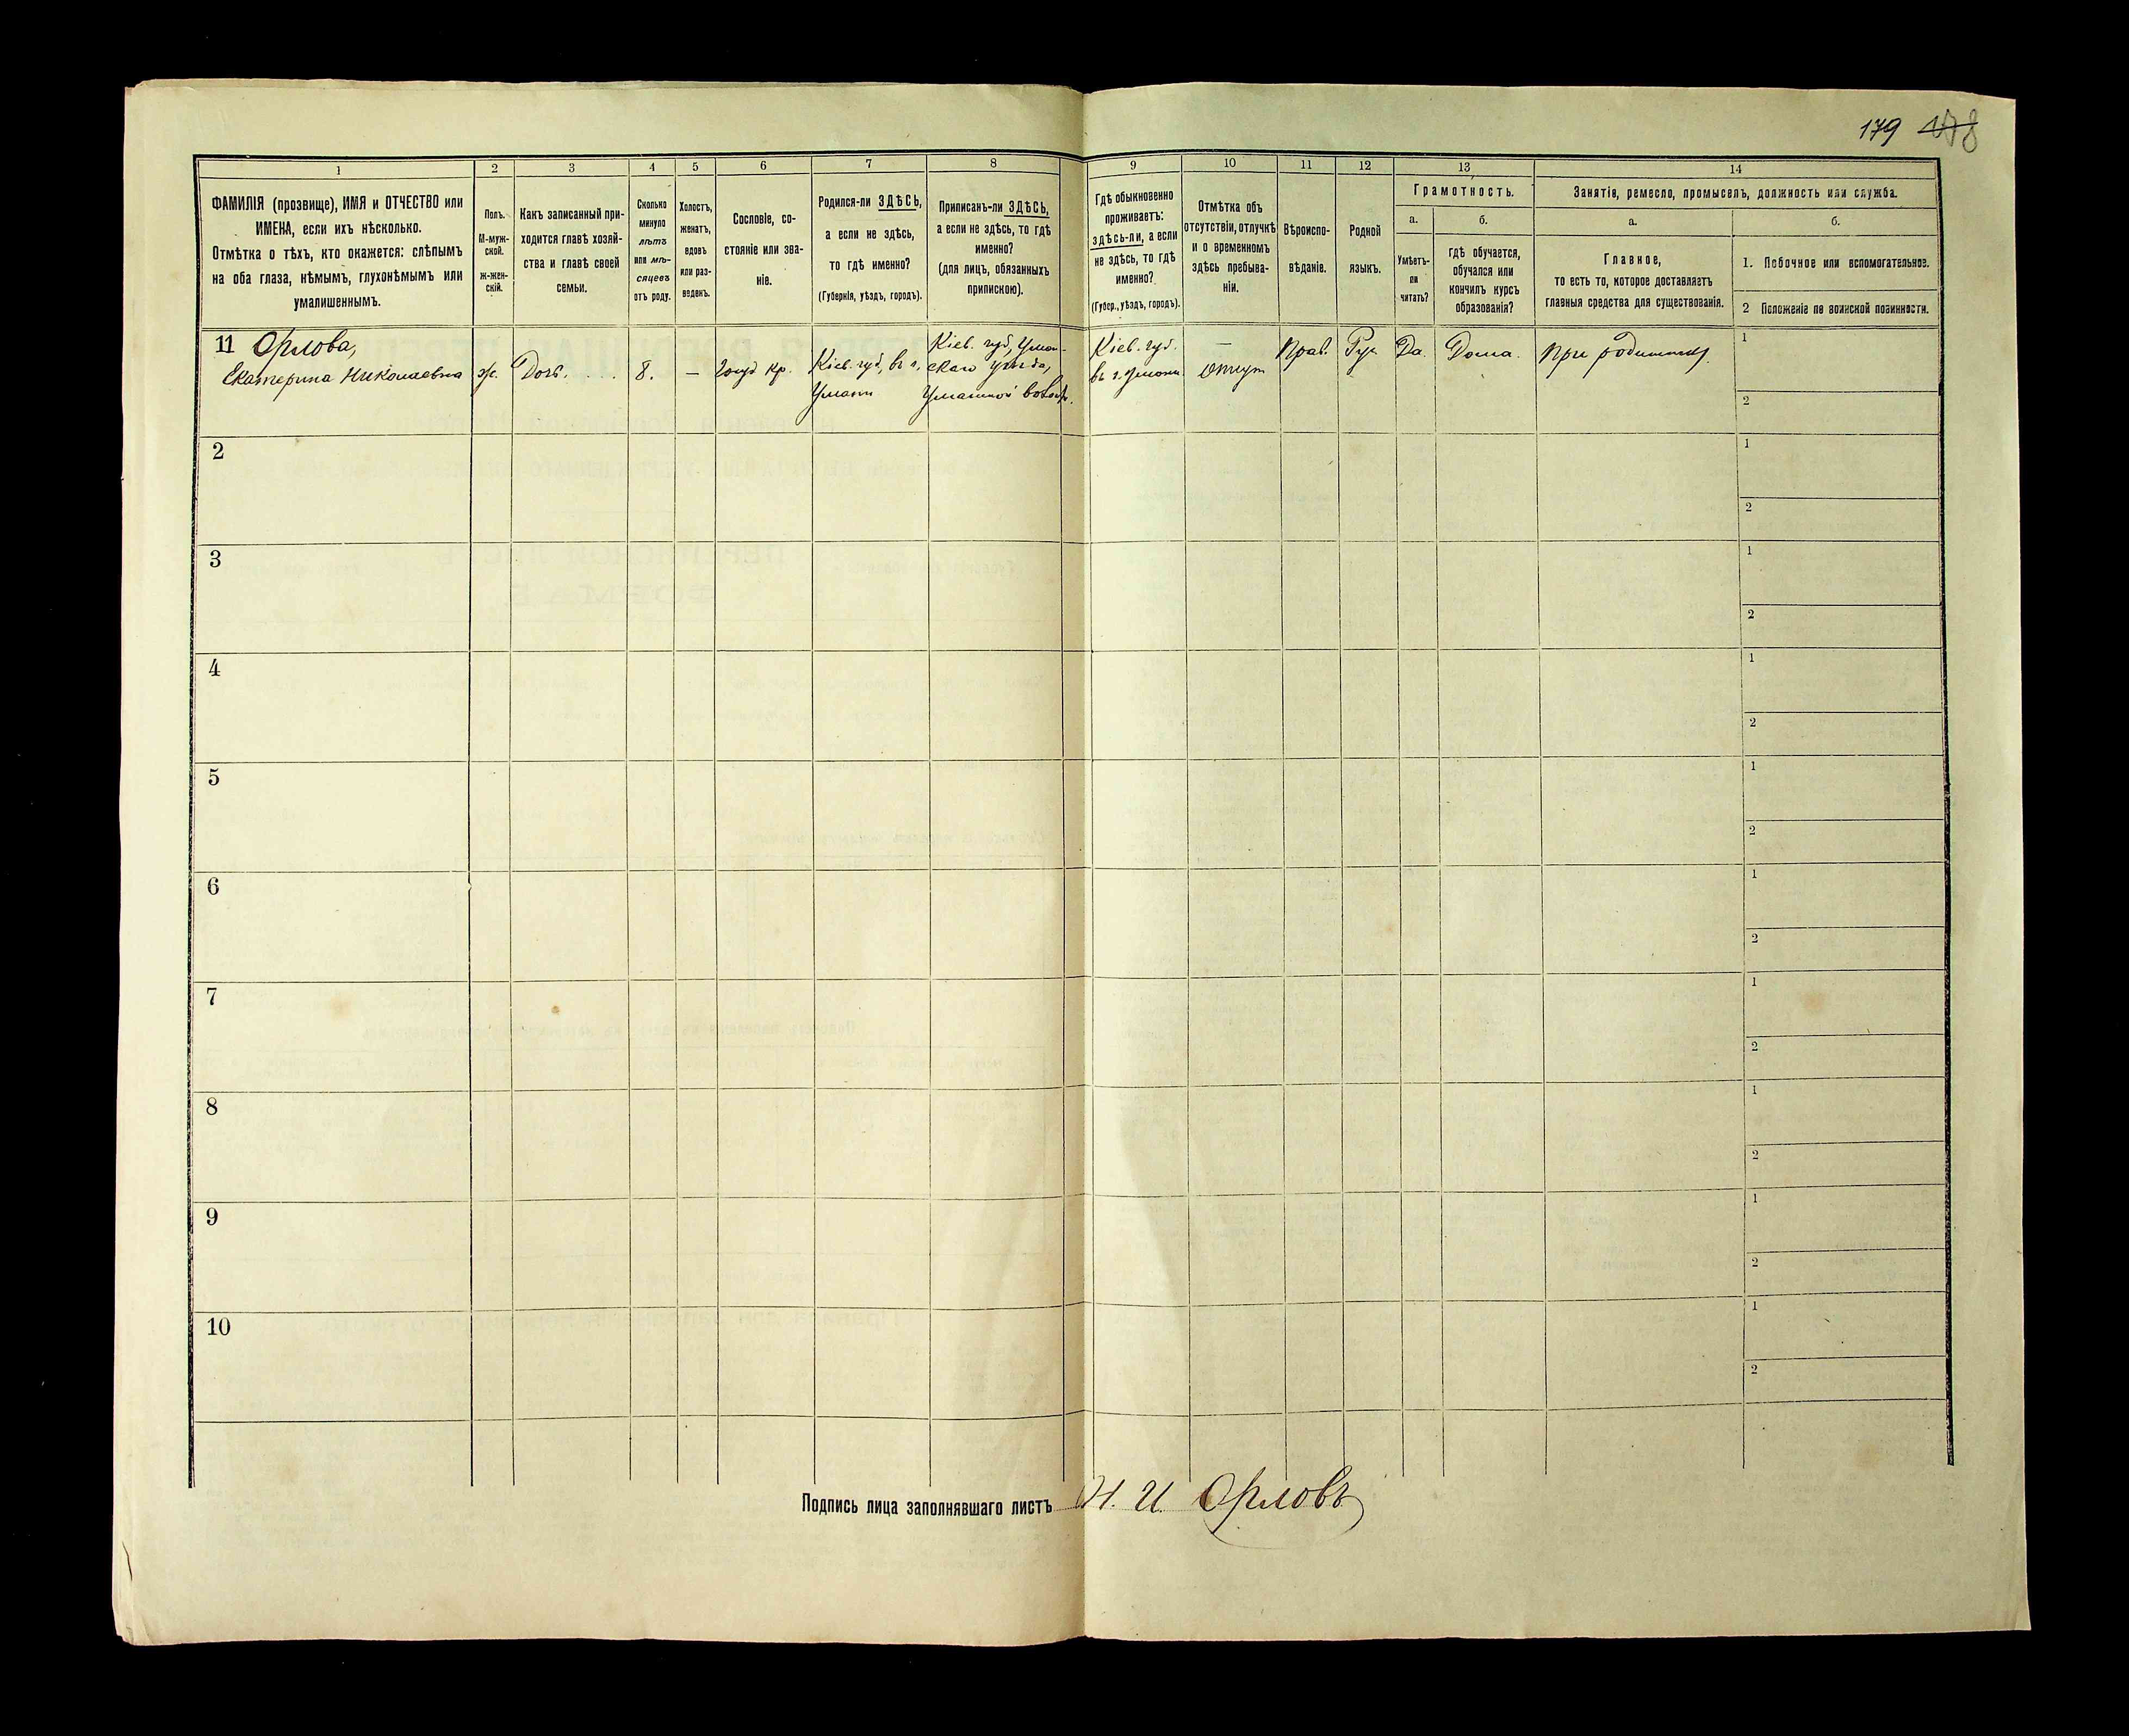 179 178
1
2
3
4
5
6
7
8
9
10
11
12
13
14
ФАМИЛІЯ (прозвище), ИМЯ и ОТЧЕСТВО или
ИМЕНА, если ихъ нѣсколько.
Отмѣтка о тѣхъ, кто окажется: слѣпымъ
на оба глаза, нѣмымъ, глухонѣмымъ или
умалишеннымъ.
Полъ.
М-муж-
ской.
ж-жен-
скій.
Какъ записанный при-
ходится главѣ хозяй-
ства и главѣ своей
семьи.
Сколько
минуло
лѣтъ
или мѣ-
сяцевъ
отъ роду.
Холостъ,
женатъ,
вдовъ
или раз-
веденъ.
Сословіе, со-
стояніе или зва-
ніе.
Родился-ли ЗДѢСЬ,
а если не здѣсь,
то гдѣ именно?
(Губернія, уѣздъ, городъ).
Приписанъ-ли ЗДѢСЬ,
а если не здѣсь, то гдѣ
именно?
(для лицъ, обязанныхъ
припискою).
Гдѣ обыкновенно
проживаетъ:
здѣсь-ли, а если
не здѣсь, то гдѣ
именно?
(Губер., уѣздъ, городъ).
Отмѣтка объ
отсутствіи, отлучкѣ
и о временномъ
здѣсь пребыва-
ніи.
Вѣроиспо-
вѣданіе.
Родной
языкъ.
Грамотность.
а.
б.
Умѣетъ-
ли
читать?
Гдѣ обучается,
обучался или
кончилъ курсъ
образованія?
Занятія, ремесло, промыселъ, должность или служба.
а.
б.
Главное,
то есть то, которое доставляетъ
главныя средства для существованія.
1. Побочное или вспомогательное.
2 Положеніе по воинской повинности.
11 Орлова,
Екатерина Николаевна
ж.
Дочь.
8.
—
кр.
Кіев. губ, въ г.
Умани
Кіев. губ, Уман-
скаго уѣзда,
Кіев. губ.
въ г. Умани
—
Прав.
Рус
Да.
Дома.
При
1
2
2
1
2
3
1
2
4
1
2
5
1
2
6
1
2
7
1
2
8
1
2
9
1
2
10
1
2
Подпись лица заполнявшаго листъ Н. И. Орловъ